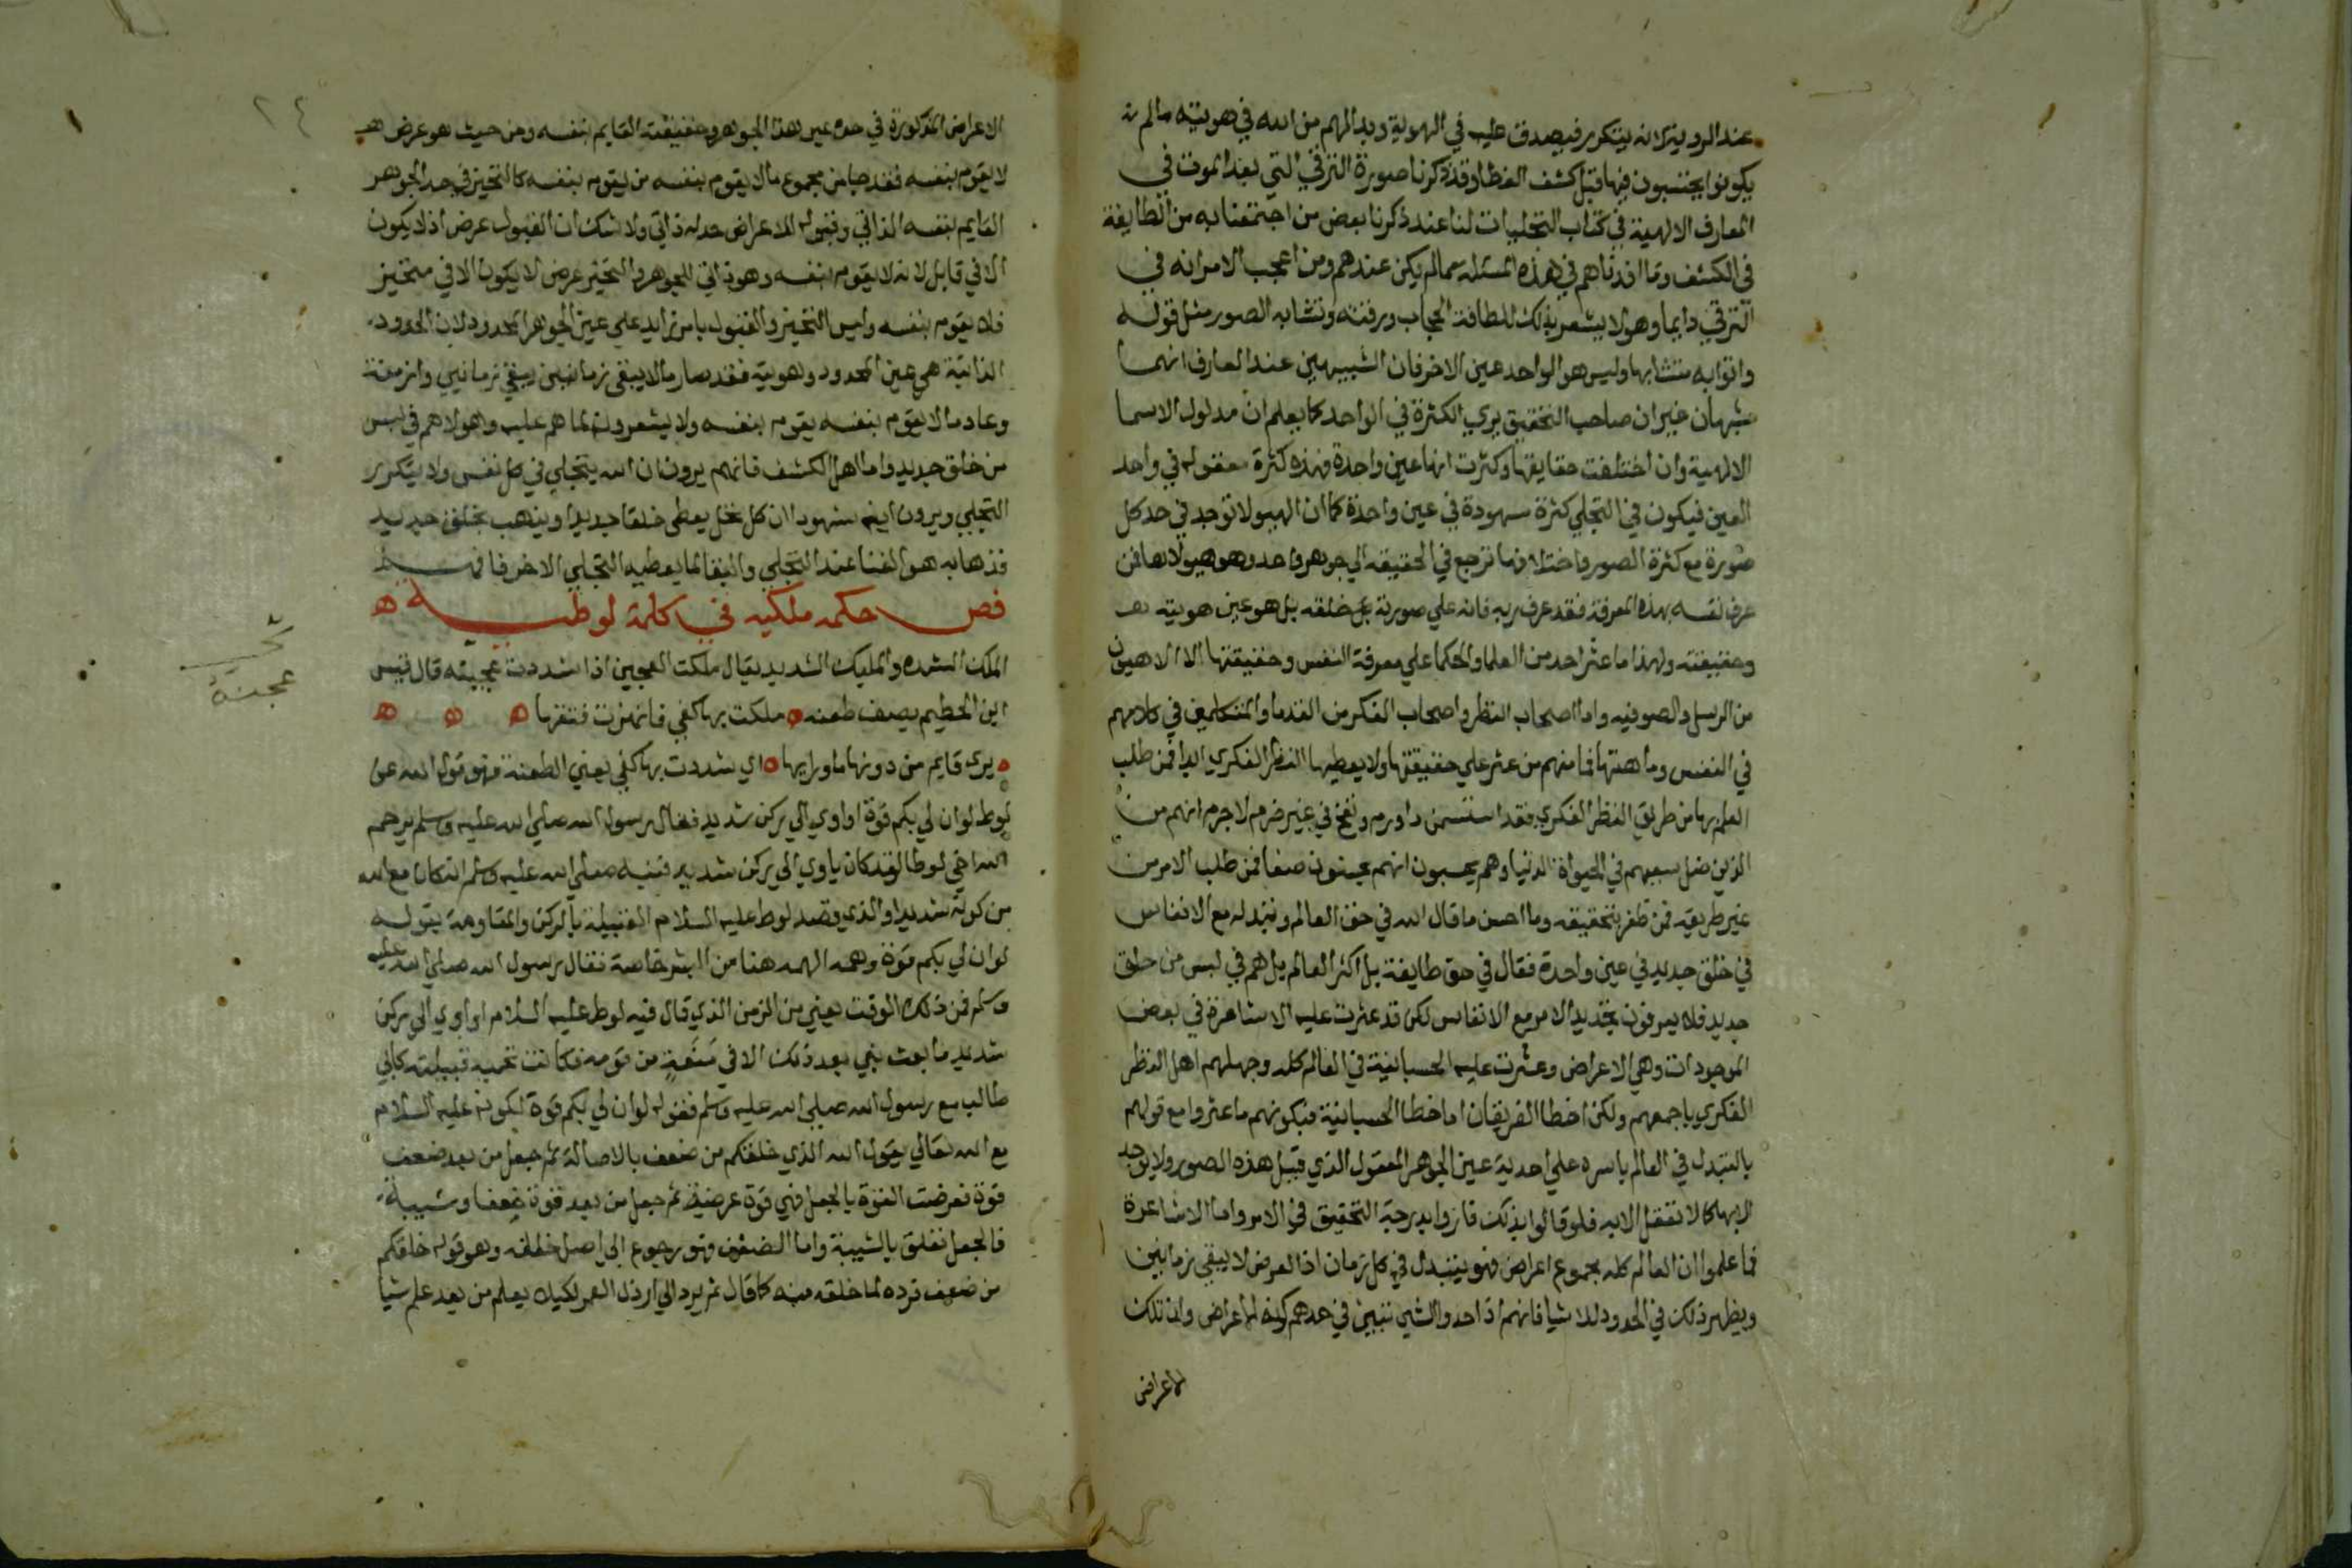 عند الروية لانه يتكرر فيصدق عليه في الهوية وبدا لهم من الله في هويته مالم
يكونوا يحتسبون فيها قبل كشف الغطا وقد ذكرنا صورة الترقي التي بعد الموت في
المعارف الالهية في كتاب التجليات لنا عند ذكرنا بعض من اجتمعنا به من الطايفة
في الكشف وما افدناهم في هذه المسئله مما لم يكن عندهم ومن اعجب الامر انه في
الترقي دايما وهو لا يشعر بذلك للطافة الحجاب ورقته وتشابه الصور مثل قوله
واتوا به متشابها وليس هو الواحد عين الاخر فان الشبيهين عند العارف انهما
شبهان غيران صاحب التحقيق يري الكثرة في الواحد كما يعلم ان مدلول الاسما
الالهية وان اختلفت حقايقها وكثرت انها عين واحدة فهذه كثرة معقوله في واحد
العين فيكون في التجلي كثرة مشهودة في عين واحدة كما ان الهيولا توجد في حد كل
صورة مع كثرة الصور واختلافها ترجع في الحقيقه الي جوهر واحد وهو هيولاها فمن
عرف نفسه بهذه المعرفة فقد عرف ربه فانه علي صورته خلقه بل هو عين هويته
وحقيقته ولهذا ما عثر احد من العلما والحكما علي معرفة النفس وحقيقتها الا الالاهيون
من الرسل والصوفيه واما اصحاب النظر واصحاب الفكر من القدما والمتكلمين في كلامهم
في النفس وماهيتها فما منهم من عثر علي حقيقتها ولا يعطيها النظر الفكري ابدا فمن طلب
العلم بها من طريق النظر الفكري فقد استسمن ذا ورم ونفخ في غير ضرم لا جرم انهم من
الذين ضل سعيهم في الحيواة الدنيا وهم يحسبون انهم يحسنون صنعا فمن طلب الامر من
غير طريقه فمن ظفر بتحقيقه وما احسن ما قال الله في حق العالم وتبدله مع الانفاس
في خلق جديد في عين واحدة فقال في حق طايفة بل اكثر العالم بل هم في لبس من خلق
جديد فلا يعرفون تجديد الامر مع الانفاس لكن قد عثرت عليه الاشاعرة في بعض
الموجودات وهي الاعراض وعثرت عليه الحسبانية في العالم كله وجهلهم اهل النظر
الفكري باجمعهم ولكن اخطا الفريقان اما خطا الحسبانية فبكونهم ما عثروا مع قولهم
بالتبدل في العالم باسره علي احدية عين الجوهر المعقول الذي قبل هذه الصور ولا يوجد
الا بها كما لا تعقل الا به فلو قالوا بذلك فازوا بدرجة التحقيق في الامر واما الاشاعرة
فما علموا ان العالم كله مجموع اعراض فهو يتبدل في كل زمان اذ العرض لا يبقي زمانين
ويظهر ذلك في الحدود للاشيا فانهم اذا حدوا الشي تبين في حدهم كونه الاعراض وان تلك
الاعراض
٢٤
الاعراض المذكورة في حده عين هذا الجوهر وحقيقته القايم بنفسه ومن حيث هو عرض
لا يقوم بنفسه فقد جا من مجموع ما لا يقوم بنفسه من يقوم بنفسه كالتحيز في حد الجوهر
القايم بنفسه الذاتي وقبوله للاعراض حد له ذاتي ولا شك ان القبول عرض اذ لا يكون
الا في قابل لانه لا يقوم بنفسه وهو ذاتي للجوهر والتحيز عرض لا يكون الا في متحيز
فلا يقوم بنفسه وليس التحيز والقبول بامر زايد علي عين الجوهر المحدود لان الحدود
الذاتية هي عين المحدود وهويته فقد صار ما لا يبقي زمانين يبقي زمانين وازمنة
وعاد ما لا يقوم بنفسه يقوم بنفسه ولا يشعرون لما هم عليه وهولا هم في لبس
من خلق جديد واما اهل الكشف فانهم يرون ان الله يتجلي في كل نفس ولا يتكرر
التجلي ويرون ايضا شهودا ان كل تجل يعطي خلقا جديدا ويذهب بخلق جديد
فذهابه هو الفنا عند التجلي والبقا لما يعطيه التجلي الاخر فافهم
فص حكمه ملكيه في كلمة لوطيه ه
الملك الشده والمليك الشديد يقال ملكت العجين اذا شددت عجينه قال قيس
ابن الحطيم يصف طعنه ملكت بها كفي فانهرت فتقها ه ه ه
يري قايم من دونها ما ورايها اي شددت بها كفي يعني الطعنة فهو قول الله عن
لوط لو ان لي بكم قوة او اوي الي ركن شديد فقال رسول الله صلي الله عليه وسلم يرحم
الله اخي لوطا لقد كان ياوي الي ركن شديد فنبه صلي الله عليه وسلم انه كان مع الله
من كونه شديدا والذي قصد لوط عليه السلام القبيلة بالركن والمقاومة بقوله
لو ان لي بكم قوة وهي الهمه هنا من البشر خاصة فقال رسول الله صلي الله عليه
وسلم فمن ذلك الوقت يعني من الزمن الذي قال فيه لوط عليه السلام او اوي الي ركن
شديد ما بعث نبي بعد ذلك الا في منعة من قومه فكانت تحميه قبيلته كابي
طالب مع رسول الله صلي الله عليه وسلم فقوله لو ان لي بكم قوة لكونه عليه السلام
مع الله تعالي يقول الله الذي خلقكم من ضعف بالاصالة ثم جعل من بعد ضعف
قوة فعرضت القوة بالجعل فهي قوة عرضية ثم جعل من بعد قوة ضعفا وشيبة
فالجعل تعلق بالشيبة واما الضعف فهو رجوع الي اصل خلقه وهو قوله خلقكم
من ضعف فرده لما خلقه منه كما قال ثم يرد الي ارذل العمر لكيلا يعلم من بعد علم شيا
عجينه